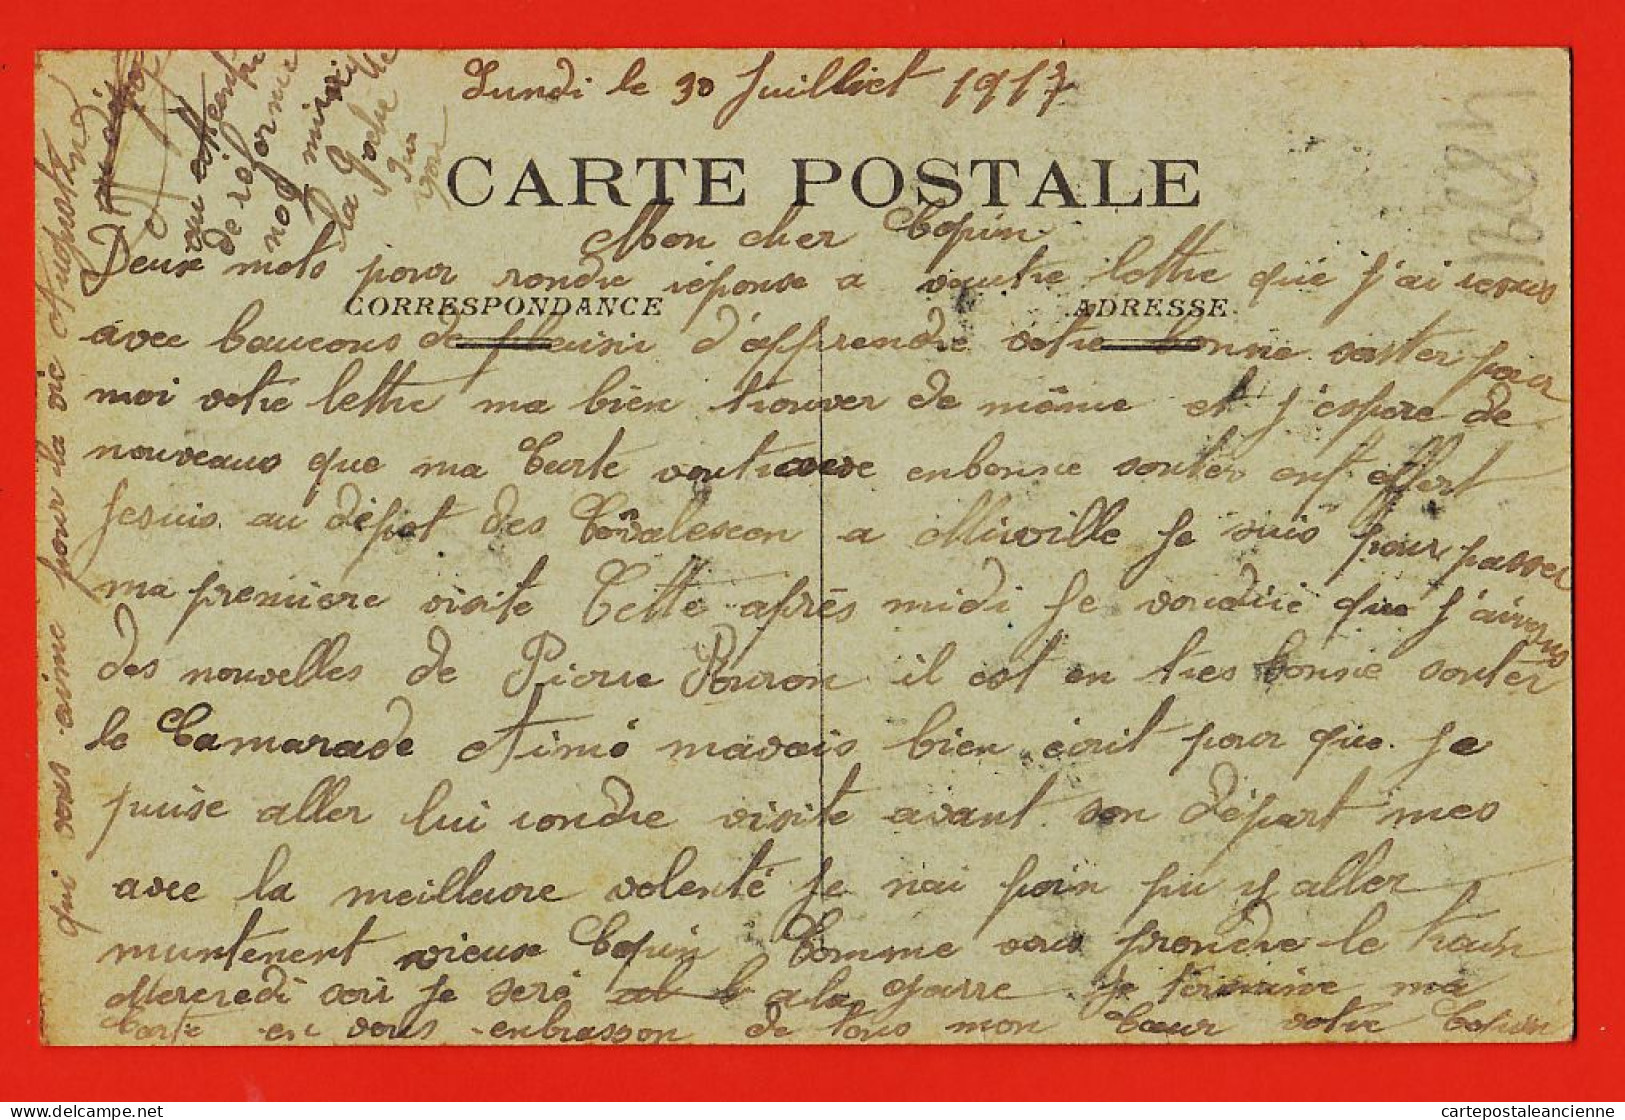 Lundi le 30 Juilliet 1917
CARTE POSTALE
Mon cher Copin
Deuxe mots pour rondre réponse a vautre lettre que j'ai resus
CORRESPONDANCE
ADRESSE
avec baucous de plaisir d'apprendre votre bonne senter pour
moi votre lettre ma bien trouver de même et j'espere de
nouveaus que ma Carte vous en bonne senter enf effert
Jesuis au dépot des Convalescon a Miroille Je suis pour passer
ma premiere visite Cette après midi Je voudrie que j'ai
des nouvelles de Pierre Pouron il est en tres bonne senter
le Camarade Aimé mavais bien écrit pour que Je
puise aller lui rondre visite avant son départ mes
avec la meilleure volenté Je nai poin pu y aller
muntenent vieuse Copin Comme vous prondre le train
Mercredi soir Je seré a la garre Je termine ma
Carte en vous enbrasson de tous mon Cœur votre Copin
qui vous aime pour la vie Augustin
qui attend
de reforme
la